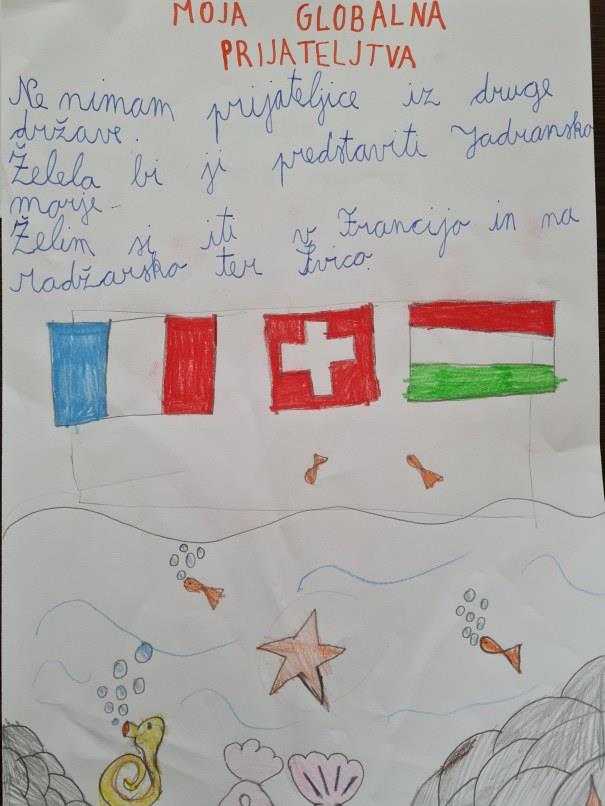 MOJA GLOBALNA
PRIJATELJTVA
Ne nimam prijateljice iz druge
države.
Želela bi ji predstaviti Jadransko
morje.
Želim si iti v Francijo in na
Madžarsko ter Švico.